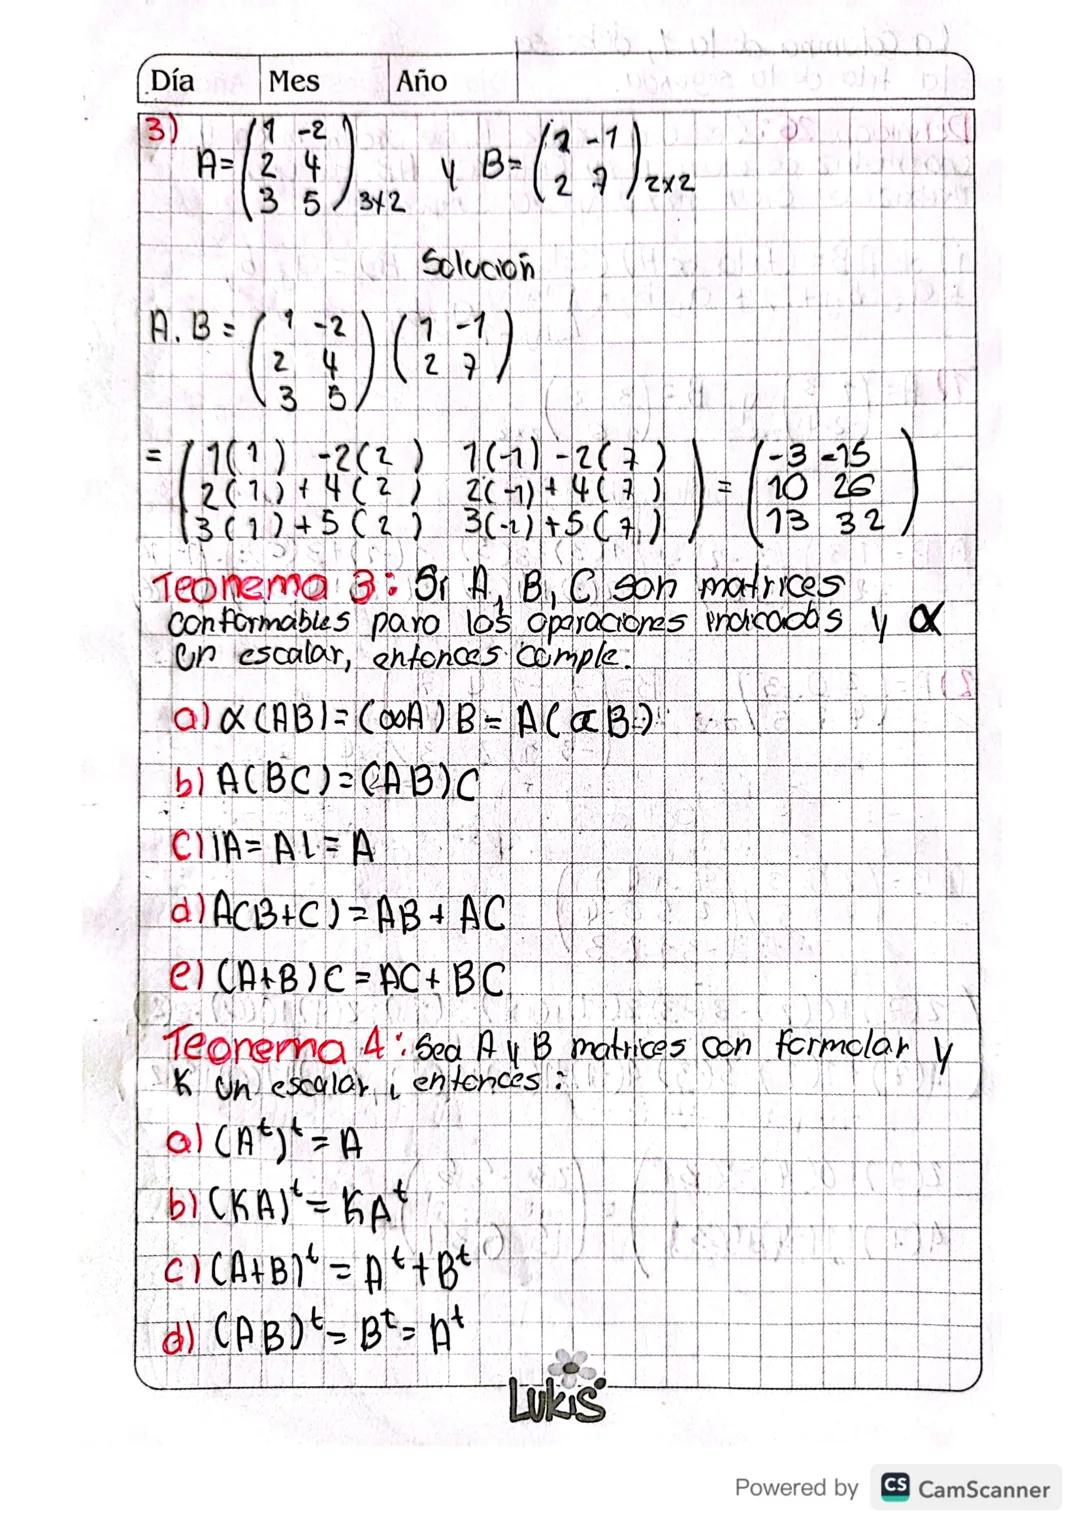 Día Mes Año
3)
A= (1 -2
2 4
3 5) 3x2 y B= (1 -1
2 7) 2x2
Solución
A. B = (1 -2
2 4
3 5) (1 -1
2 7)
= (1(1) -2(2) 1(-1) -2(7)
2(1) + 4(2) 2(-1) + 4(7)
3(1) + 5(2) 3(-1) + 5(7)) = (-3 -15
10 26
13 32)
Teorema 3: Si A, B, C son matrices
conformables para los operaciones indicadas y α
un escalar, entonces cumple:
a) α(AB) = (αA)B = A(αB)
b) A(BC) = (AB)C
c) IA = AI = A
d) A(B+C) = AB + AC
e) (A+B)C = AC + BC
Teorema 4: Sea A y B matrices con formolar y
K un escalar, entonces:
a) (Aᵗ)ᵗ = A
b) (KA)ᵗ = KAᵗ
c) (A+B)ᵗ = Aᵗ + Bᵗ
d) (AB)ᵗ = Bᵗ = Aᵗ
Lukis
Powered by CS CamScanner